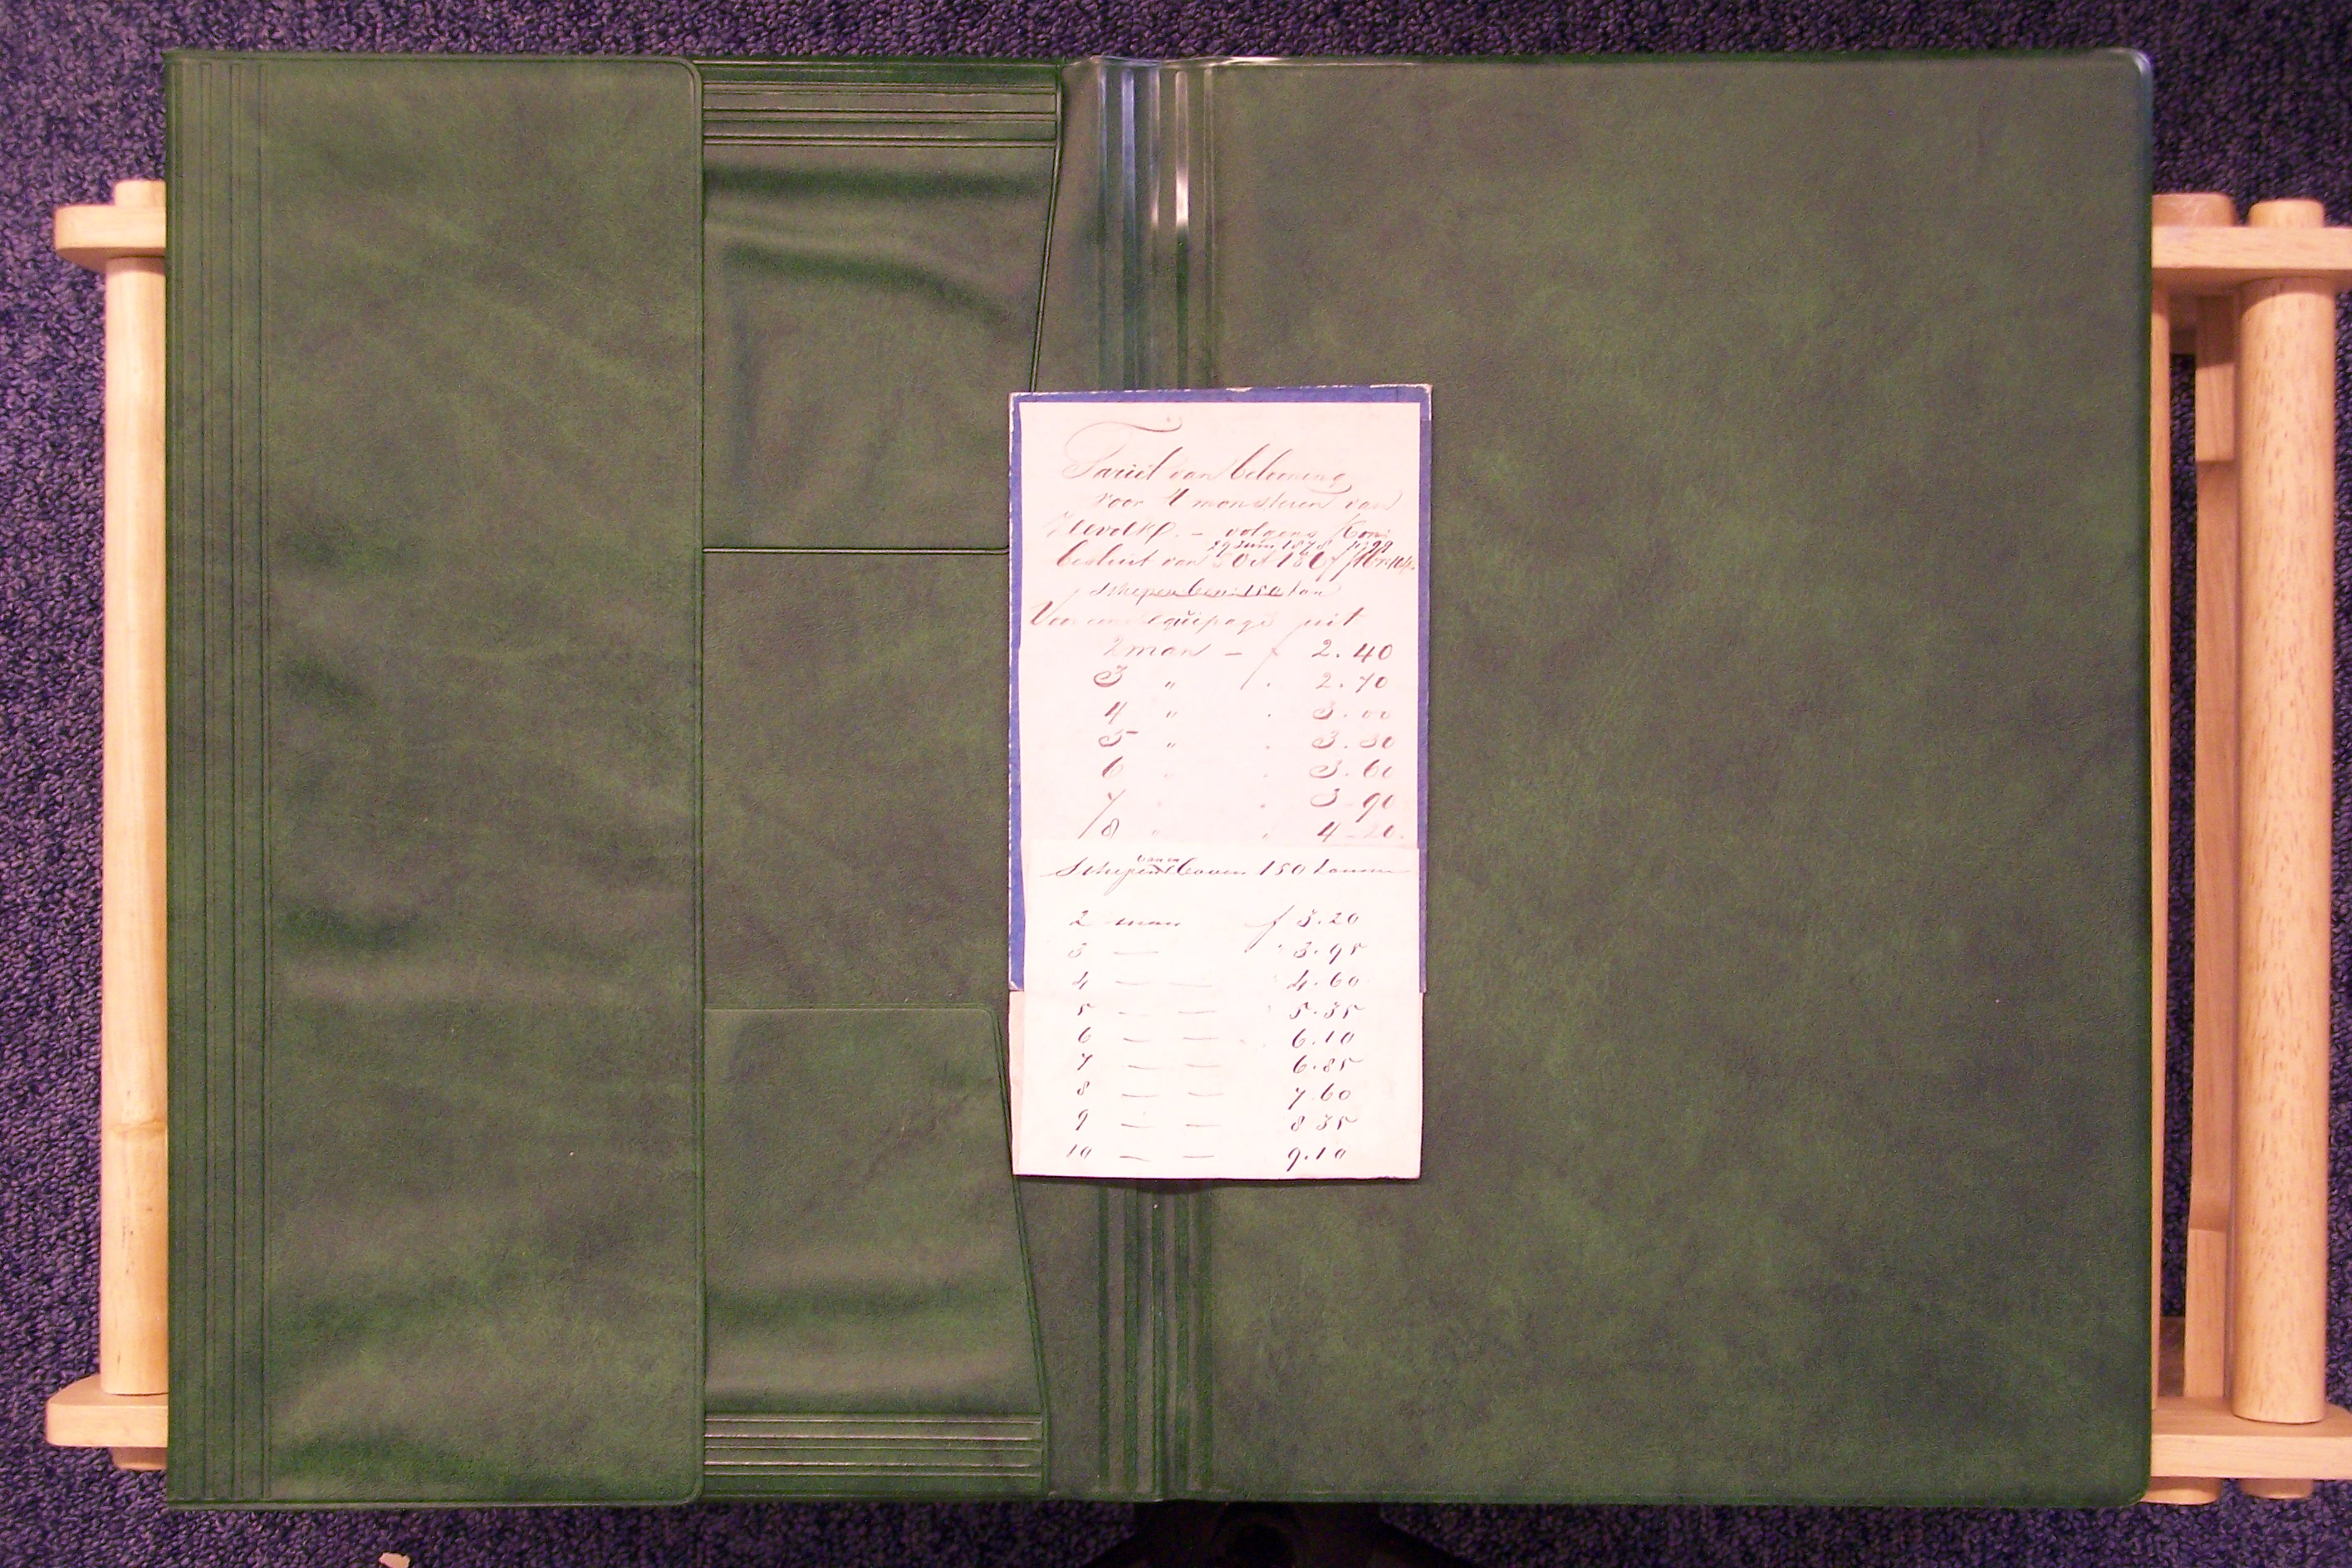 Tarief van belooning
voor 't monsteren van
Zeevolk. — volgens Kon:
29 Juni 1878 No 29
besluit van Oct 186
Schepen ben: 150 ton
Voor eene equipage uit
2 man — f 2.40
3 " . 2.70
4 " . 3.00
5 " . 3.30
6 " . 3.60
7 " . 3-90
8 " . 4-20.
Schepen van en boven 150 tonnen
2 man f 3.20
3 — " 3.95
4 — — " 4.60
5 — — 5.35
6 — — 6.10
7 — — 6.85
8 — — 7.60
9 — — 8 35
10 — — 9.10